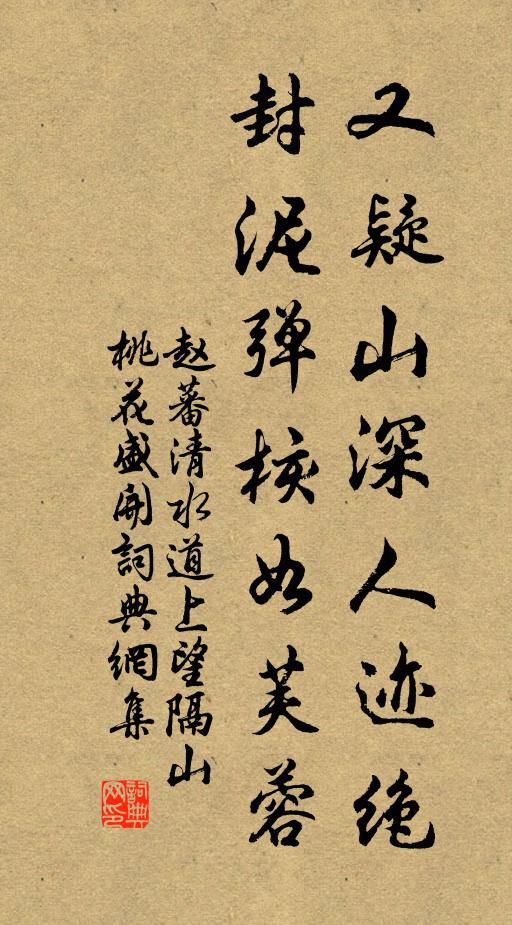 又疑山深人迹绝
封泥弹核如芙蓉
赵蕃清水道上望隔山
桃花盛開詞典網集
詞典网印